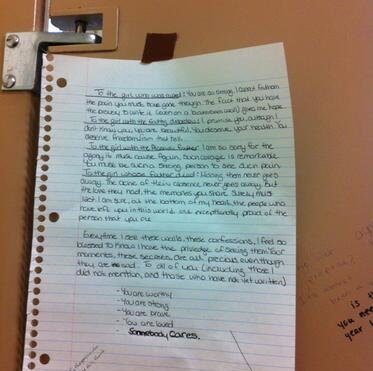 To the girl who was raped: You are so strong. I cannot fathom
the pain you must have gone through. The fact that you have
the bravery to write it (even on a bathroom wall) gives me hope.
To the girl with the eating disorder: I promise you, although I
don't know you, you are beautiful. You deserve your health. You
deserve freedom from that hell.
To the girl with the father: I am so sorry for the
agony its must cause again, such courage is remarkable.
You must be such a strong person to see such pain.
To the girl whose father died: Missing them never goes
away. The ache of their absence never goes away, but
the love they had, the memories you share surely must
last. I am sure, at the bottom of my heart, the people who
have left you in this world are exceptionally proud of the
person that you are.
Everytime I see these walls, these confessions, I feel so
blessed to know I have the privilege of seeing them. Your
moments, these secrets, are all precious even though
they are sad. To all of you (including those I
did not mention, and those who have not yet written)
- You are worthy
- You are strong
- You are brave
- You are loved
- Somebody Cares.
is th
you nee
year l